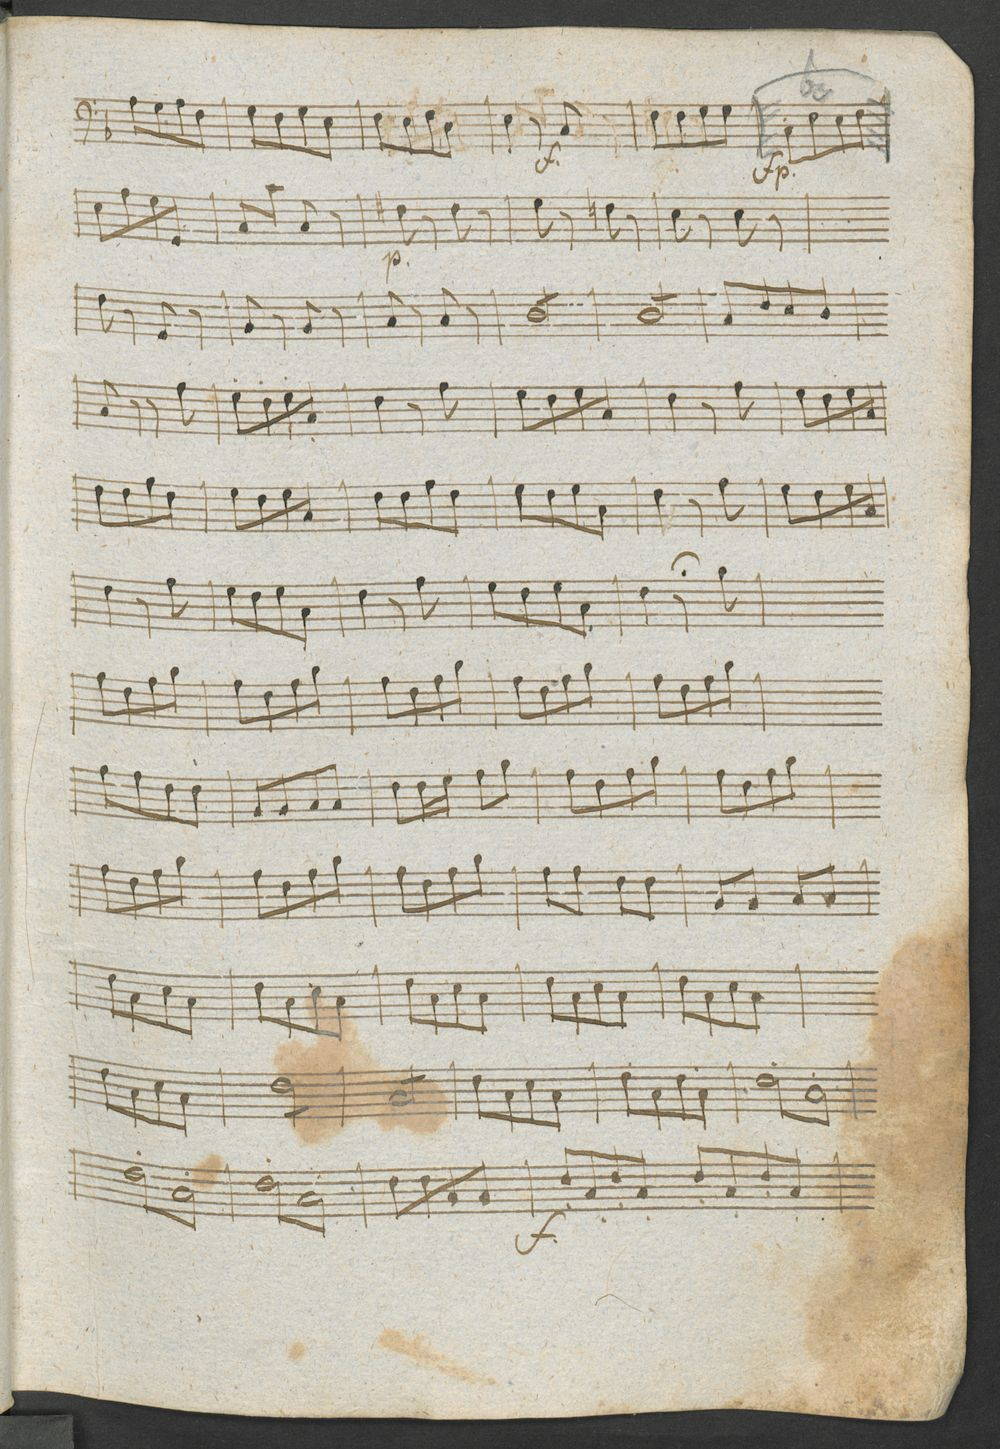 f.
fp.
p.
f.